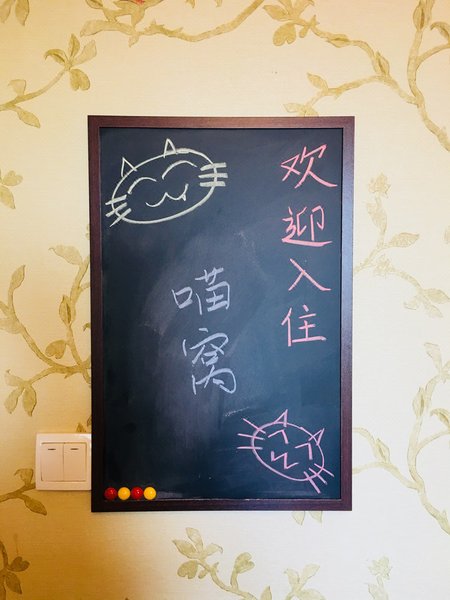 欢迎入住
喵窝